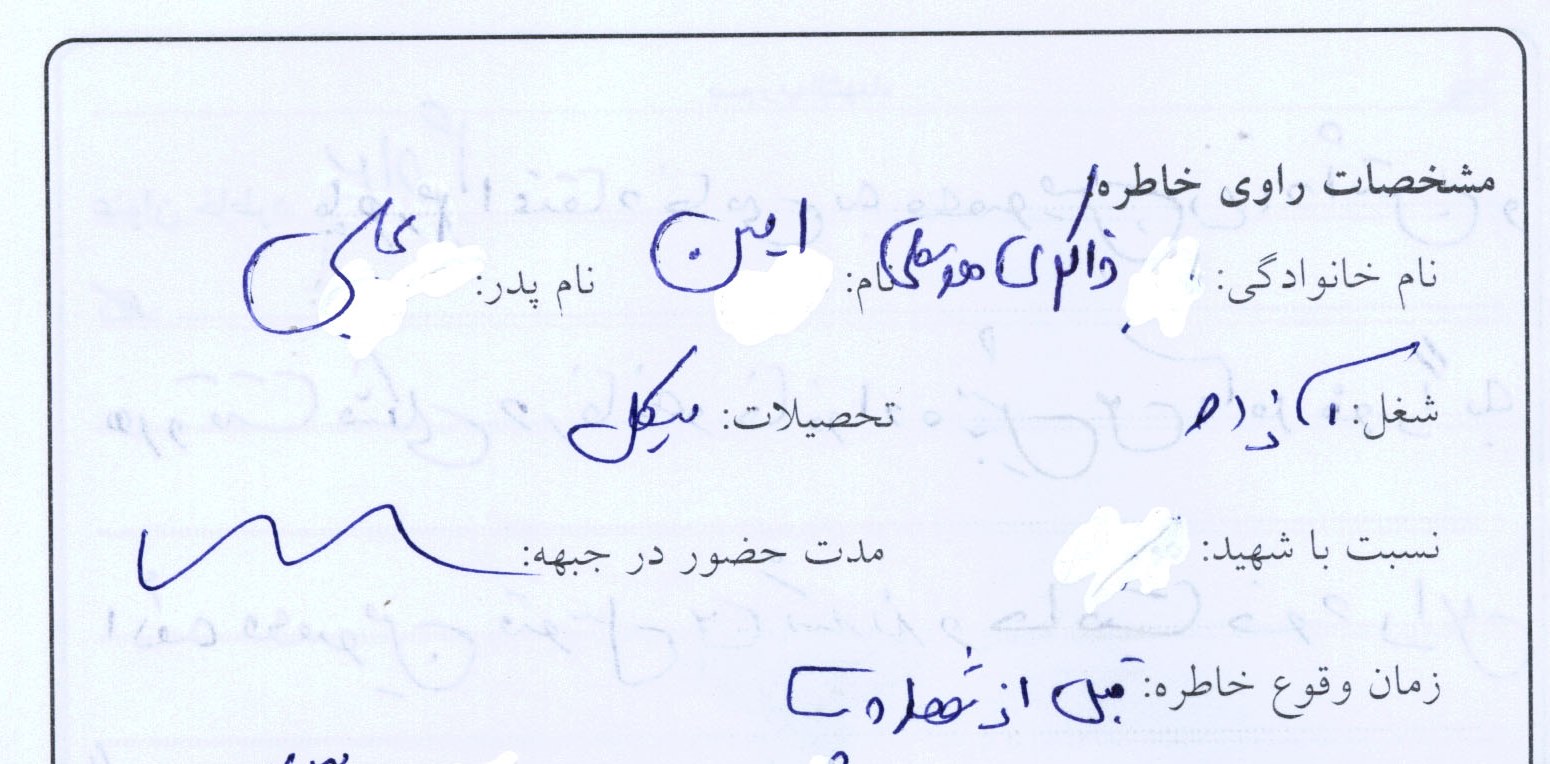 مشخصات راوی خاطره:
نام خانوادگی: ذاکری نام: امین نام پدر: علی
شغل: آزاد تحصیلات: سیکل
نسبت با شهید: مدت حضور در جبهه:
زمان وقوع خاطره: قبل از شهادت